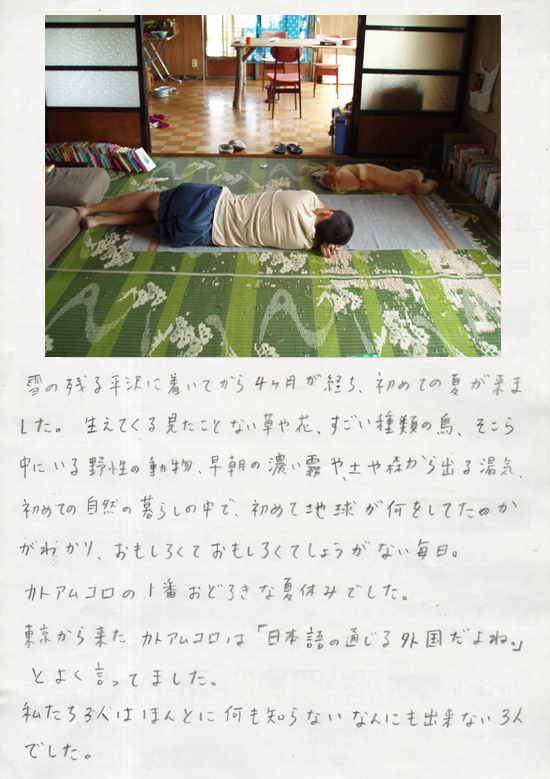 雪の残る平沢に着いてから4ヶ月が経ち、初めての夏が来ま
した。生えてくる見たことない草や花、すごい種類の鳥、そこら
中にいる野性の動物、早朝の濃い霧や、土や森から出る湯気、
初めての自然の暮らしの中で、初めて地球が何をしてたのか
がわかり、おもしろくておもしろくてしょうがない毎日。
カトアムコロの1番おどろきな夏休みでした。
東京から来たカトアムコロは「日本語の通じる外国だよね。」
とよく言ってました。
私たち3人はほんとに何も知らないなんにも出来ない3人
でした。